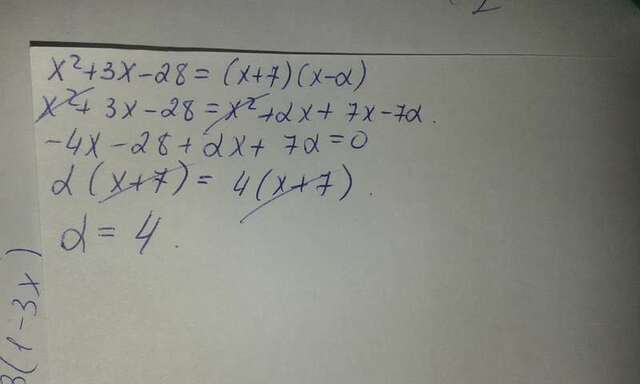 x²+3x-28=(x+7)(x-α)
x²+3x-28=x²+αx+7x-7α.
-4x-28+αx+7α=0
α(x+7)=4(x+7).
α=4.
3(1-3x)